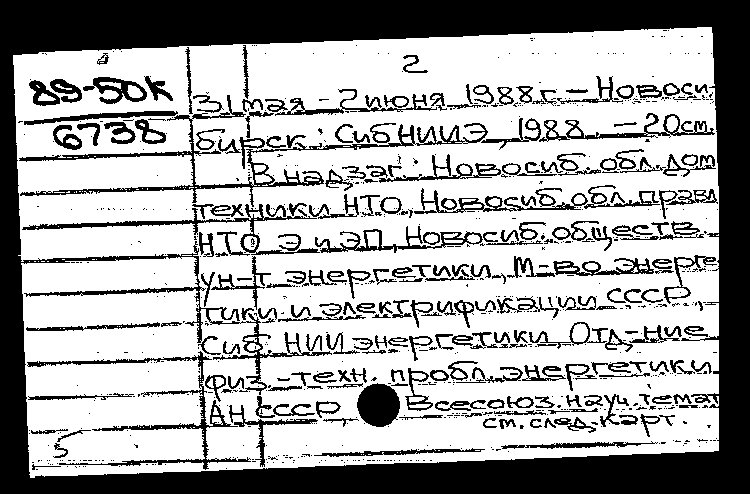 2
89-50К
6738
31 мая - 2 июня 1988 г. - Новоси-
бирск : СибНИИЭ, 1988. - 20 см.
В надзаг.: Новосиб. обл. дом
техники НТО, Новосиб. обл. правл
НТО Э и ЭП, Новосиб. обществ.
ун-т энергетики, М-во энерге
тики и электрификации СССР,
Сиб. НИИ энергетики, Отд-ние
физ.-техн. пробл. энергетики
АН СССР, Всесоюз. науч. темат
см. след. карт.
5